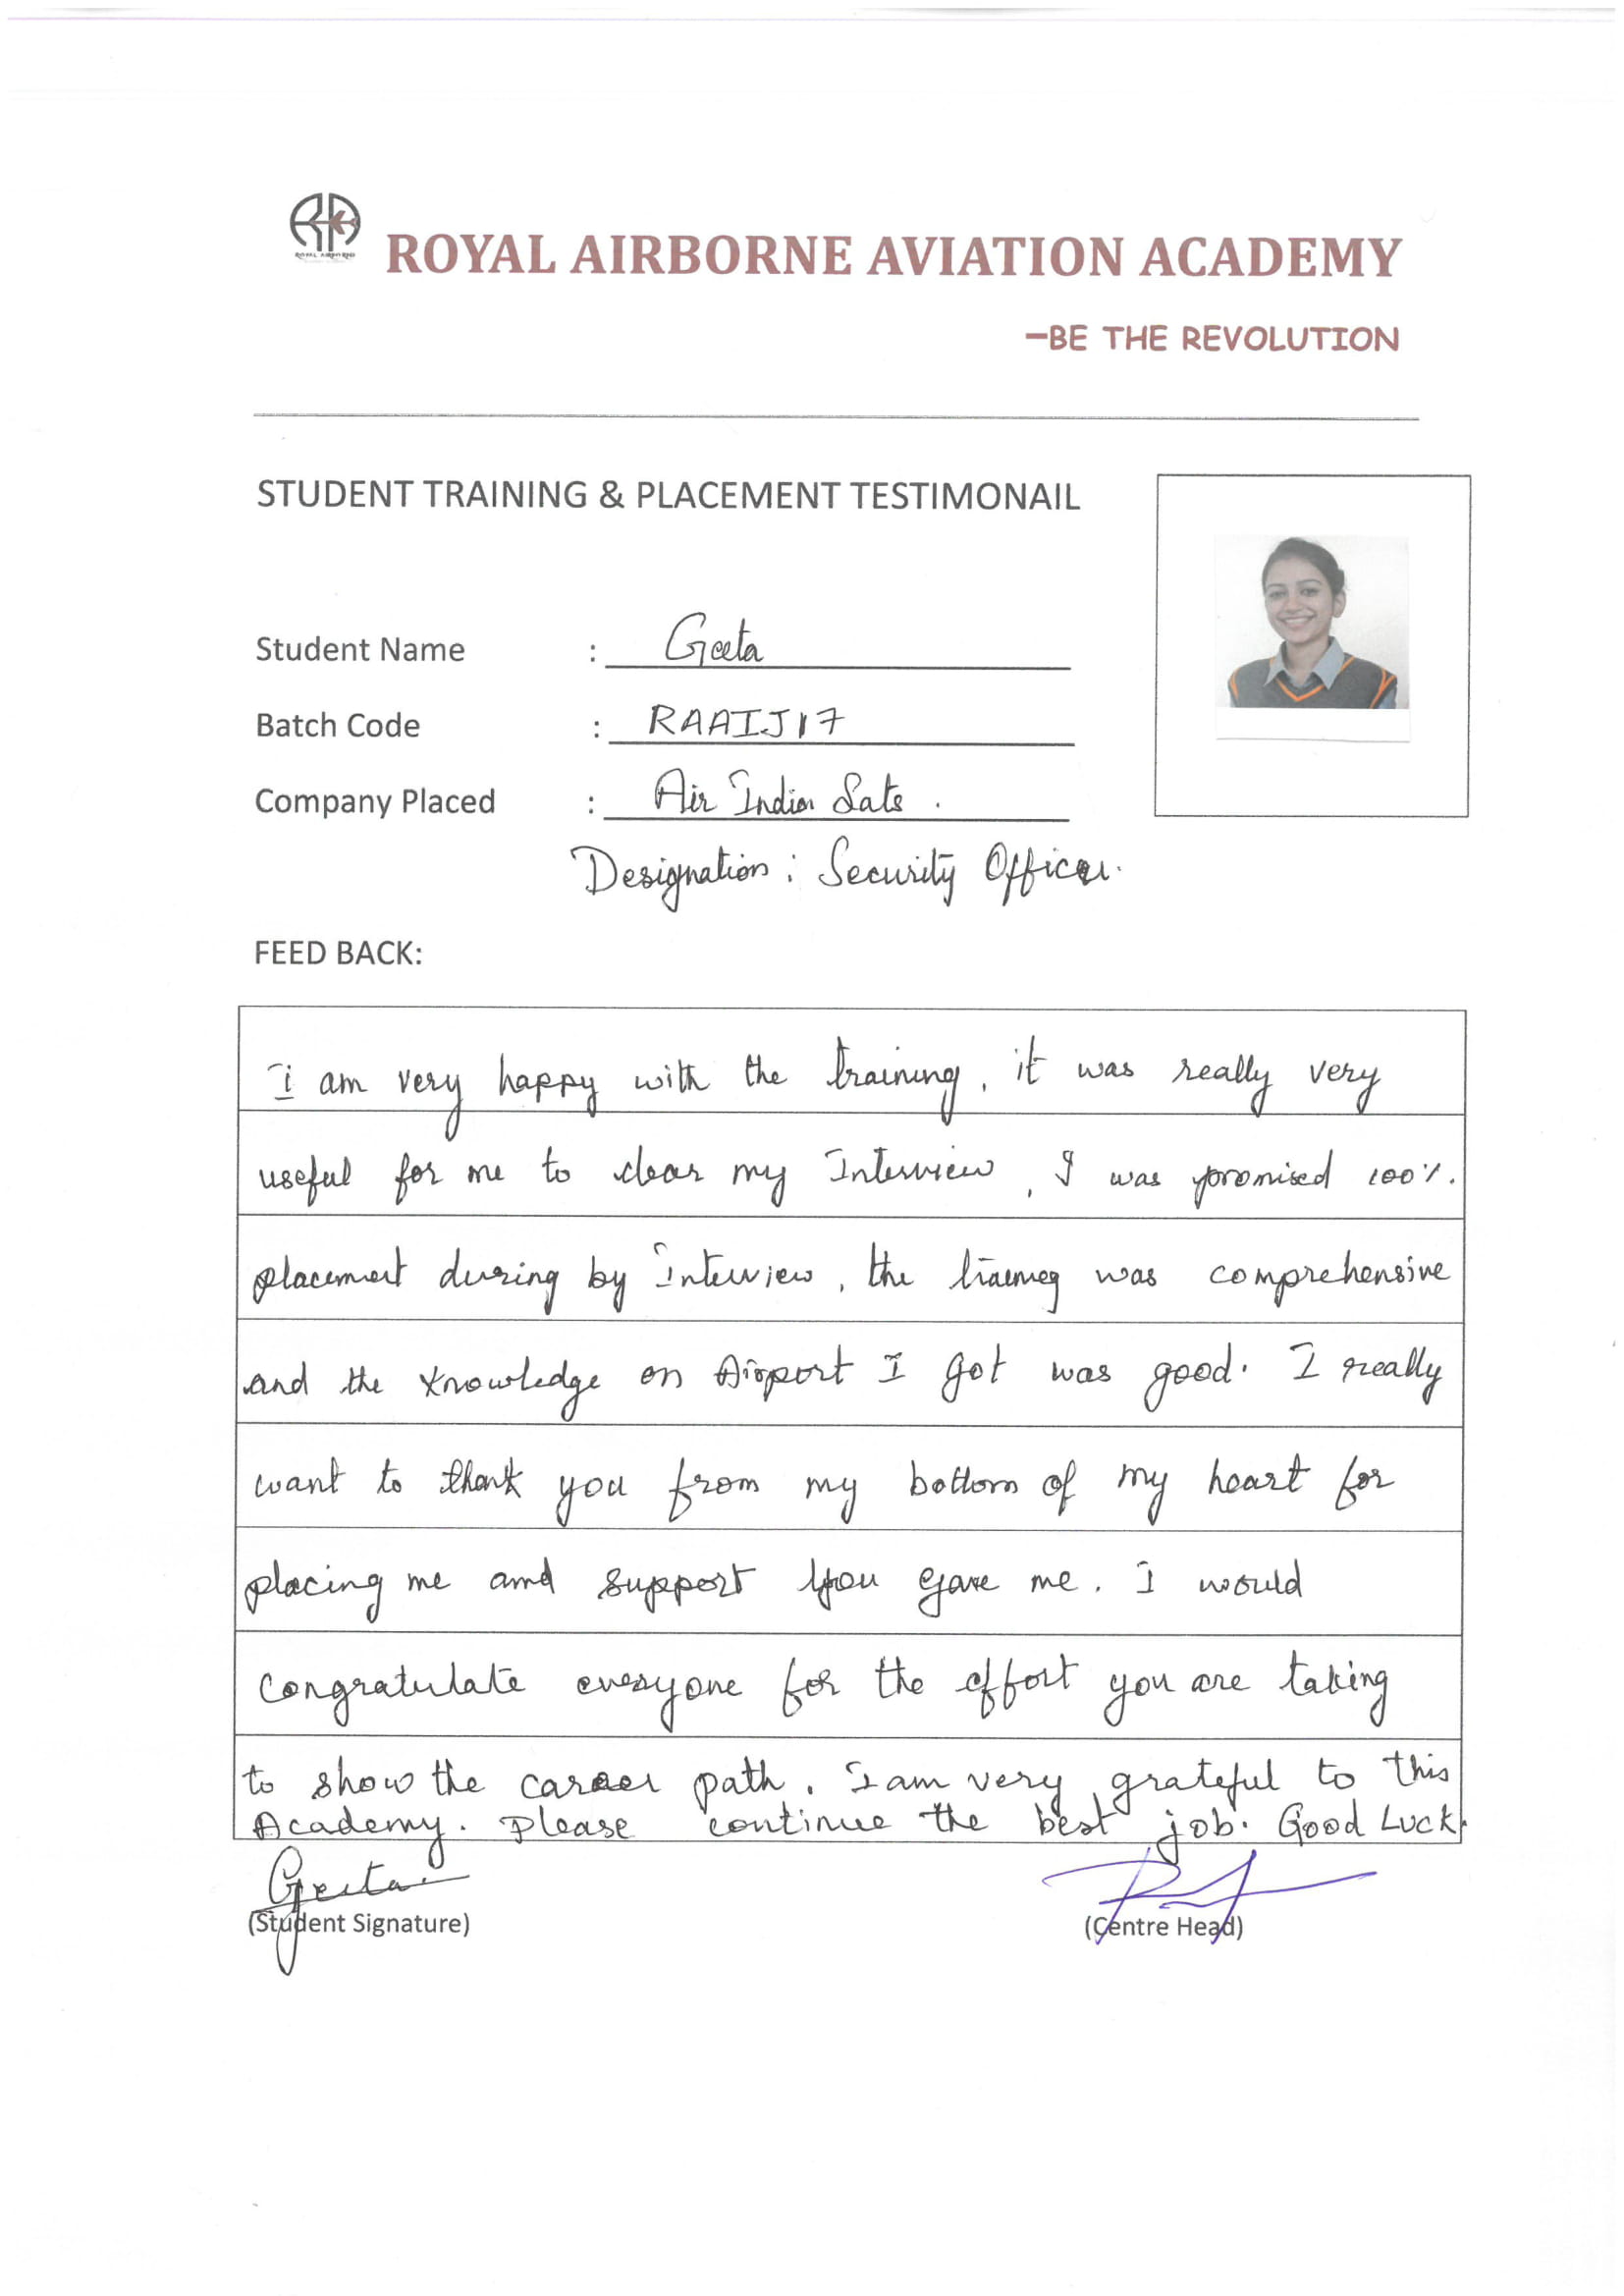 ROYAL AIRBORNE
ROYAL AIRBORNE AVIATION ACADEMY
–BE THE REVOLUTION
STUDENT TRAINING & PLACEMENT TESTIMONAIL
Student Name : Geeta
Batch Code : RAAIJ17
Company Placed : Air India Sats .
Designation : Security Officer.
FEED BACK:
I am very happy with the training, it was really very
useful for me to clear my Interview, I was promised 100%.
placement during by Interview, the training was comprehensive
and the knowledge on Airport I got was good. I really
want to thank you from my bottom of my heart for
placing me and support you gave me. I would
congratulate everyone for the effort you are taking
to show the career path. I am very grateful to this
Academy. Please continue the best job. Good Luck.
Geeta
(Student Signature) (Centre Head)